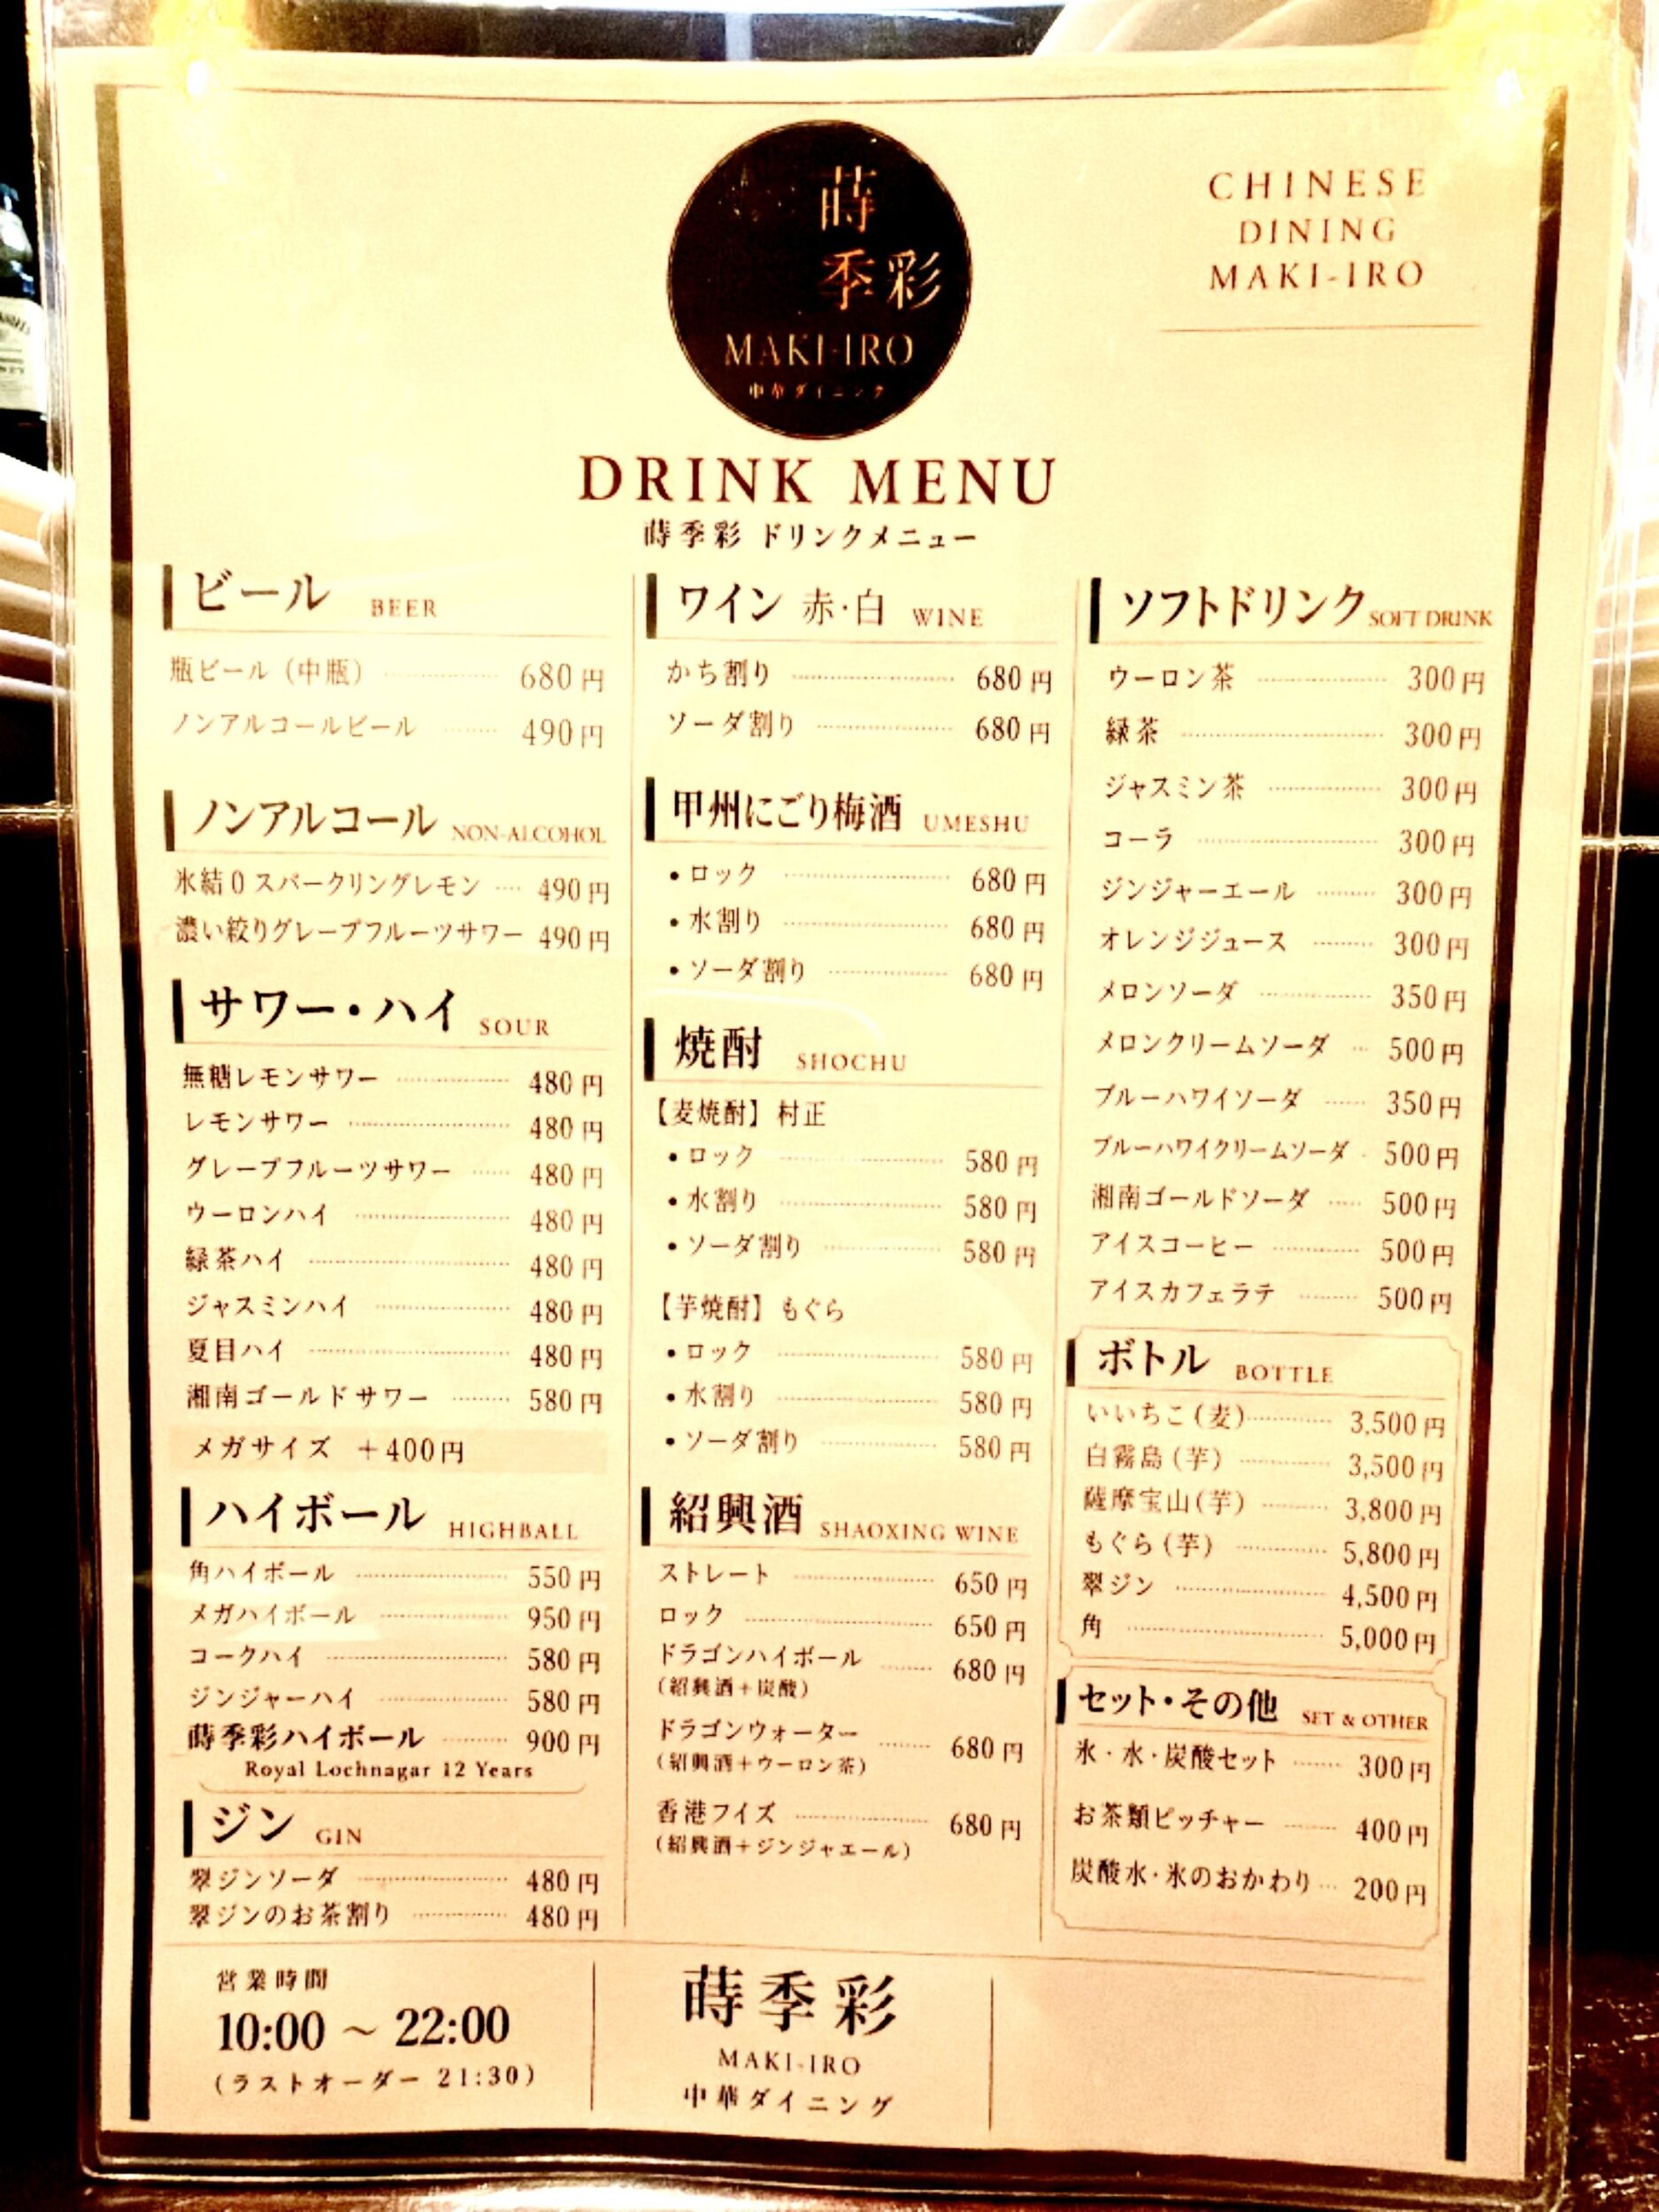 蒔
季彩
MAKI-IRO
中華ダイニング
CHINESE
DINING
MAKI-IRO
DRINK MENU
蒔季彩 ドリンクメニュー
ビール BEER
瓶ビール（中瓶） 680円
ノンアルコールビール 490円
ノンアルコール NON-ALCOHOL
氷結0スパークリングレモン 490円
濃い絞りグレープフルーツサワー 490円
サワー・ハイ SOUR
無糖レモンサワー 480円
レモンサワー 480円
グレープフルーツサワー 480円
ウーロンハイ 480円
緑茶ハイ 480円
ジャスミンハイ 480円
夏目ハイ 480円
湘南ゴールドサワー 580円
メガサイズ ＋400円
ハイボール HIGHBALL
角ハイボール 550円
メガハイボール 950円
コークハイ 580円
ジンジャーハイ 580円
蒔季彩ハイボール 900円
Royal Lochnagar 12 Years
ジン GIN
翠ジンソーダ 480円
翠ジンのお茶割り 480円
ワイン 赤・白 WINE
かち割り 680円
ソーダ割り 680円
甲州にごり梅酒 UMESHU
・ロック 680円
・水割り 680円
・ソーダ割り 680円
焼酎 SHOCHU
【麦焼酎】村正
・ロック 580円
・水割り 580円
・ソーダ割り 580円
【芋焼酎】もぐら
・ロック 580円
・水割り 580円
・ソーダ割り 580円
紹興酒 SHAOXING WINE
ストレート 650円
ロック 650円
ドラゴンハイボール 680円
（紹興酒＋炭酸）
ドラゴンウォーター 680円
（紹興酒＋ウーロン茶）
香港フイズ 680円
（紹興酒＋ジンジャエール）
ソフトドリンク SOFT DRINK
ウーロン茶 300円
緑茶 300円
ジャスミン茶 300円
コーラ 300円
ジンジャーエール 300円
オレンジジュース 300円
メロンソーダ 350円
メロンクリームソーダ 500円
ブルーハワイソーダ 350円
ブルーハワイクリームソーダ 500円
湘南ゴールドソーダ 500円
アイスコーヒー 500円
アイスカフェラテ 500円
ボトル BOTTLE
いいちこ（麦） 3,500円
白霧島（芋） 3,500円
薩摩宝山（芋） 3,800円
もぐら（芋） 5,800円
翠ジン 4,500円
角 5,000円
セット・その他 SET & OTHER
氷・水・炭酸セット 300円
お茶類ピッチャー 400円
炭酸水・氷のおかわり 200円
営業時間
10:00 ～ 22:00
（ラストオーダー 21:30）
蒔季彩
MAKI-IRO
中華ダイニング